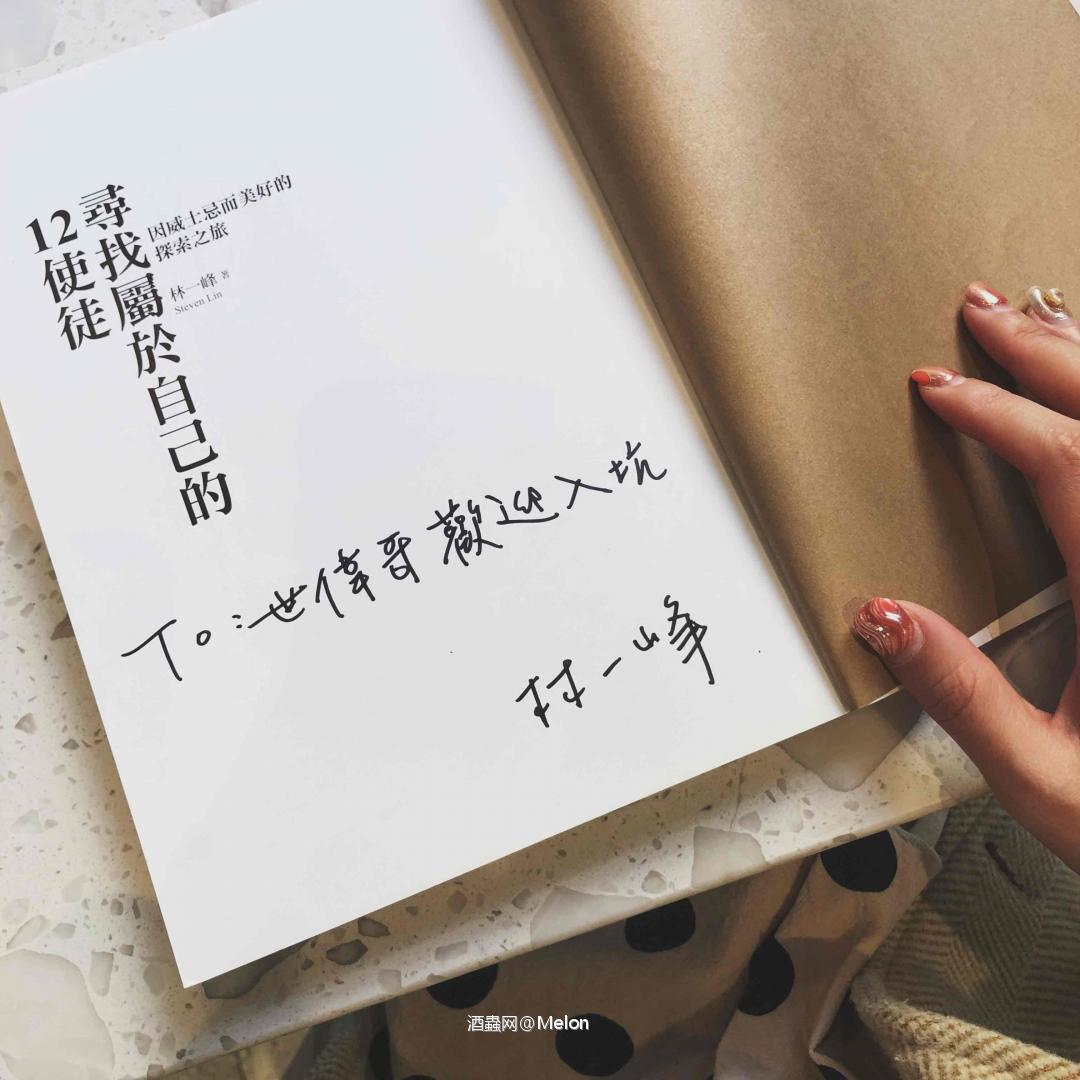 尋找屬於自己的
12使徒
因威士忌而美好的
探索之旅
林一峰 著
Steven Lin
To:世偉哥歡迎入坑
林一峰
酒蟲网@Melon